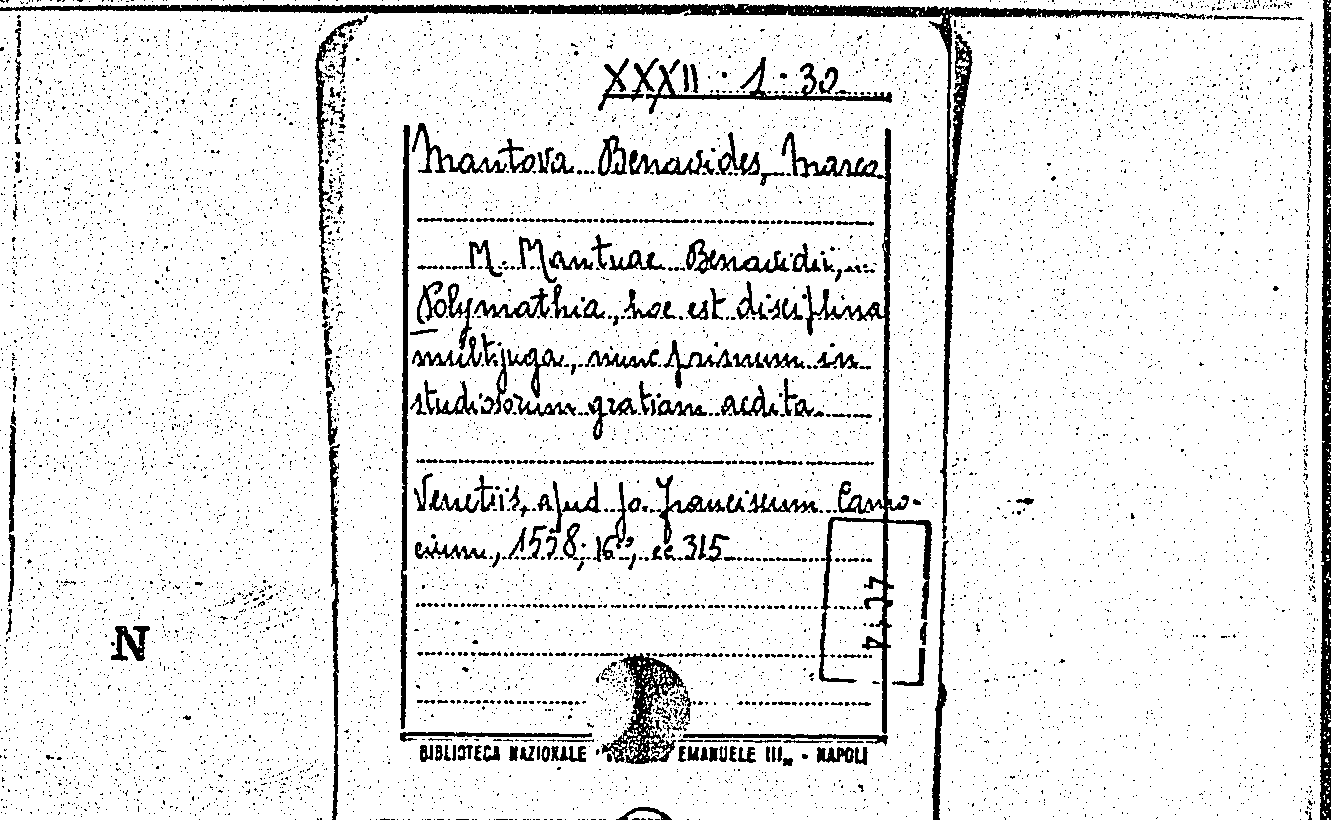 XXXII · 1 · 30
Mantova Benavides, Marco
M. Mantuae Benavidii, ...
Polymathia, hoc est disciplina
multijuga, nunc primum in
studiosorum gratiam aedita.
Venetiis, apud Jo. Franciscum Camo-
cium, 1558; 16°, cc 315
N
BIBLIOTECA NAZIONALE EMANUELE III„ - NAPOLI